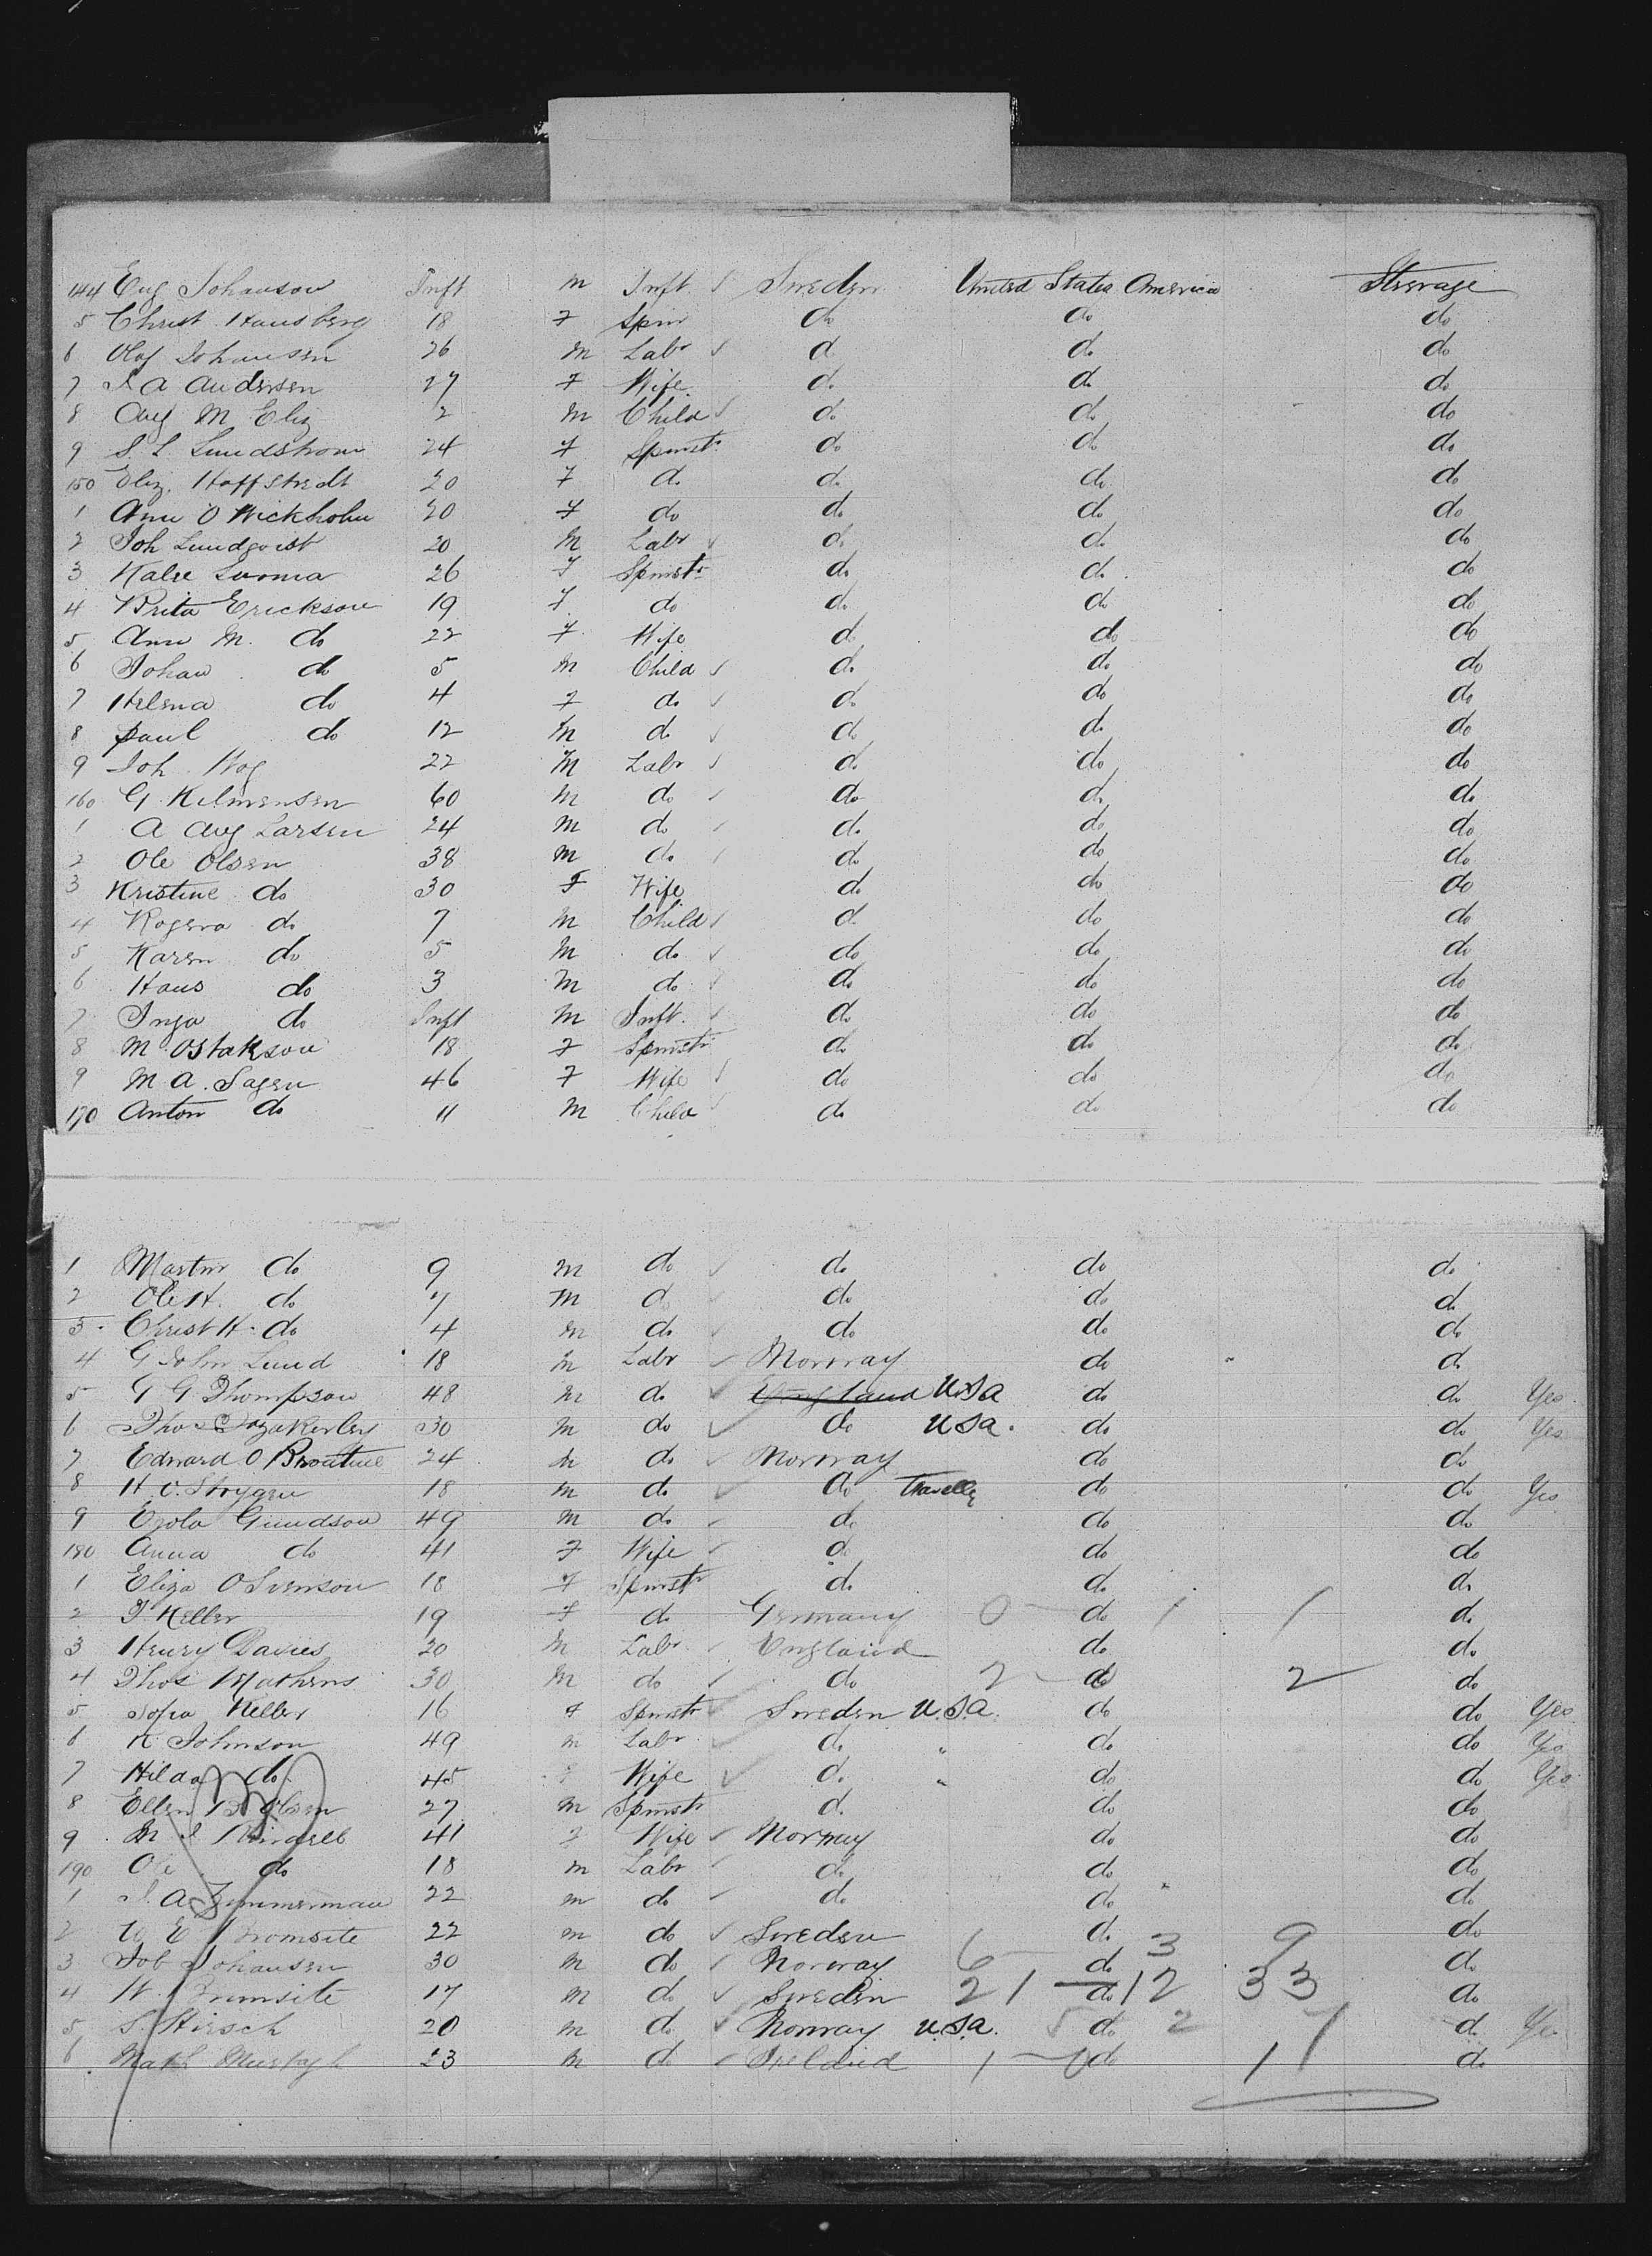 144 Eug Johanson Inft m Inft ✓ Sweden United States America Steerage
5 Christ Hansberg 18 F Spin do do do
6 Olof Johansen 26 m Labr ✓ d do do
7 J A Andersen 27 F Wife do do do
8 Aug M Eliz 2 m Child ✓ do do do
9 S. L Lundstrom 24 F Spinstr do do do
150 Eliz. Hoffstedt 20 F do do do do
1 Ann O Wickholm 20 F do do do do
2 Joh Lundqvist 20 m Labr ✓ do do do
3 Kalse Luoma 26 F Spinstr do do do
4 Brita Erickson 19 F do do do do
5 Ann M. do 22 F Wife do do do
6 Johan do 5 m Child ✓ do do do
7 Helena do 4 F do ✓ do do do
8 paul do 12 m do ✓ do do do
9 Joh Hog 22 m Labr ✓ do do do
160 G. Kelmensen 60 m do ✓ do do do
1 A Aug Larsen 24 m do ✓ do do do
2 Ole Olsen 38 m do ✓ do do do
3 Kristine do 30 F Wife do do do
4 do 7 m Child ✓ do do do
5 Karen do 5 m do ✓ do do do
6 Hans do 3 m do ✓ do do do
7 Inga do Inft m Inft. ✓ do do do
8 M. Ostakson 18 F Spinstr do do do
9 M. A. Sagen 46 F Wife ✓ do do do
170 Anton do 11 m Child ✓ do do do
1 Martin do 9 m do ✓ do do do
2 Ole H. do 7 m do ✓ do do do
3 Christ H. do 4 m do ✓ do do do
4 G John Lund 18 m Labr ✓ Norway do do
5 G G Thompson 48 m do ✓ England USA do do Yes
6 Thos 30 m do ✓ do USA. do do Yes
7 Edward O 24 m do ✓ Norway do do
8 H. O. 18 m do ✓ do Travelling do do Yes
9 Gundson 49 m do ✓ do do do
180 Anna do 41 F Wife ✓ do do do
1 Eliza O Svenson 18 F Spinstr do do do
2 J. Keller 19 F do Germany 0 do 1 1 do
3 Henry Davies 20 m Labr ✓ England do do
4 Thos Mathews 30 m do ✓ do 2 do 2 do
5 Sofia Keller 16 F Spinstr ✓ Sweden U.S.A. do do Yes
6 K. Johnson 49 m Labr ✓ do " do do Yes
7 Hilda do 45 F Wife ✓ do " do do Yes
8 Ellen B Olsen 27 m Spinstr do do do
9 M J 41 F Wife ✓ Norway do do
190 Ole do 18 m Labr ✓ do do do
1 J. A Zimmerman 22 m do ✓ do do do
2 E 22 m do ✓ Sweden do do
3 Job Johansen 30 m do ✓ Norway 6 do 3 9 do
4 17 m do ✓ Sweden 21 — do 12 33 do
5 S. Hirsch 20 m do ✓ Norway U.S.A. 5 do 2 7 do Yes
6 23 m do ✓ Ireland 1 — 0 do 1 do